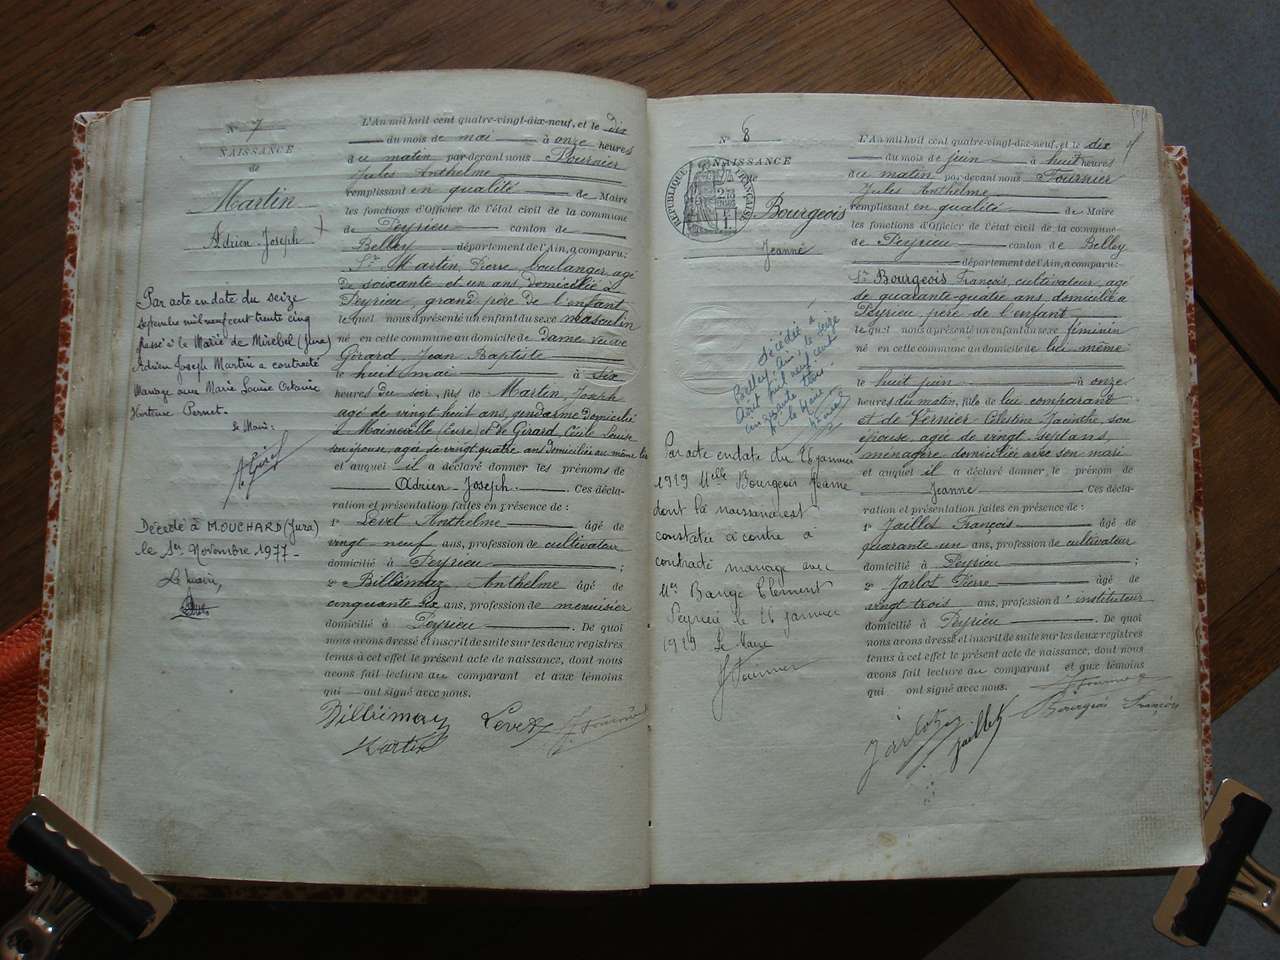 N° 7
NAISSANCE
de
Martin
Adrien Joseph
Par acte en date du seize
septembre mil neuf cent trente cinq
passé à la Mairie de Mirebel (Jura)
Adrien Joseph Martin a contracté
Mariage avec Marie Louise Octavie
Hortense Pernet.
le Maire :
Décédé à MOUCHARD (Jura)
le 1er Novembre 1977 -
Le Maire,
L'An mil huit cent quatre-vingt-dix-neuf, et le dix
du mois de mai à onze heures
du matin par-devant nous Fournier
Jules Anthelme
remplissant en qualité de Maire
les fonctions d'Officier de l'état civil de la commune
de Peyrieu canton de
Belley département de l'Ain, a comparu :
Sr Martin, Pierre boulanger, agé
de soixante et un ans domicilié à
Peyrieu, grand père de l'enfant
lequel nous a présenté un enfant du sexe masculin
né en cette commune au domicile de Dame veuve
Girard, Jean Baptiste
l huit mai à six
heures du soir, fils de Martin, Joseph
agé de vingt huit ans, gendarme domicilié
à Maineville (Eure) et de Girard, Cécile Louise
son épouse, agée de vingt quatre ans domiciliée au même lieu
et auquel il a déclaré donner les prénoms de
Adrien-Joseph. Ces décla-
ration et présentation faites en présence de :
1° Levet Anthelme âgé de
vingt neuf ans, profession de cultivateur
domicilié à Peyrieu ;
2° Billiémaz Anthelme âgé de
cinquante six ans, profession de menuisier
domicilié à Peyrieu. De quoi
nous avons dressé et inscrit de suite sur les deux registres
tenus à cet effet le présent acte de naissance, dont nous
avons fait lecture au comparant et aux témoins
qui ont signé avec nous.
Billiémaz Levet J Fournier
Martin
N° 8
NAISSANCE
de
RÉPUBLIQUE FRANÇAISE
Bourgeois
Jeanne
Décédée à
Belley, Ain, le seize
Août mil neuf cent
cinquante trois.
P. le Maire
Par acte en date du 26 janvier
1919 Melle Bourgeois Jeanne
dont la naissance est
constatée ci contre à
contracté mariage avec
Mr Barge Clément
Peyrieu le 26 janvier
1919 Le Maire
J Fournier
L'An mil huit cent quatre-vingt-dix-neuf, et le dix
du mois de juin à huit heures
du matin par-devant nous Fournier
Jules Anthelme
remplissant en qualité de Maire
les fonctions d'Officier de l'état civil de la commune
de Peyrieu canton de Belley
département de l'Ain, a comparu :
Sr Bourgeois François, cultivateur, agé
de quarante quatre ans domicilié à
Peyrieu, père de l'enfant
lequel nous a présenté un enfant du sexe féminin
né en cette commune au domicile de lui-même
le huit juin à onze
heures du matin, fille de lui comparant
et de Vernier Célestine Jacinthe, son
épouse, agée de vingt sept ans,
ménagère domiciliée avec son mari
et auquel il a déclaré donner, le prénom de
Jeanne Ces décla-
ration et présentation faites en présence de :
1° Jaillet François âgé de
quarante un ans, profession de cultivateur
domicilié à Peyrieu ;
2° Jarlot Pierre âgé de
vingt trois ans, profession d'instituteur
domicilié à Peyrieu. De quoi
nous avons dressé et inscrit de suite sur les deux registres
tenus à cet effet le présent acte de naissance, dont nous
avons fait lecture au comparant et aux témoins
qui ont signé avec nous.
J Fournier
Jarlot Jaillet Bourgeois François